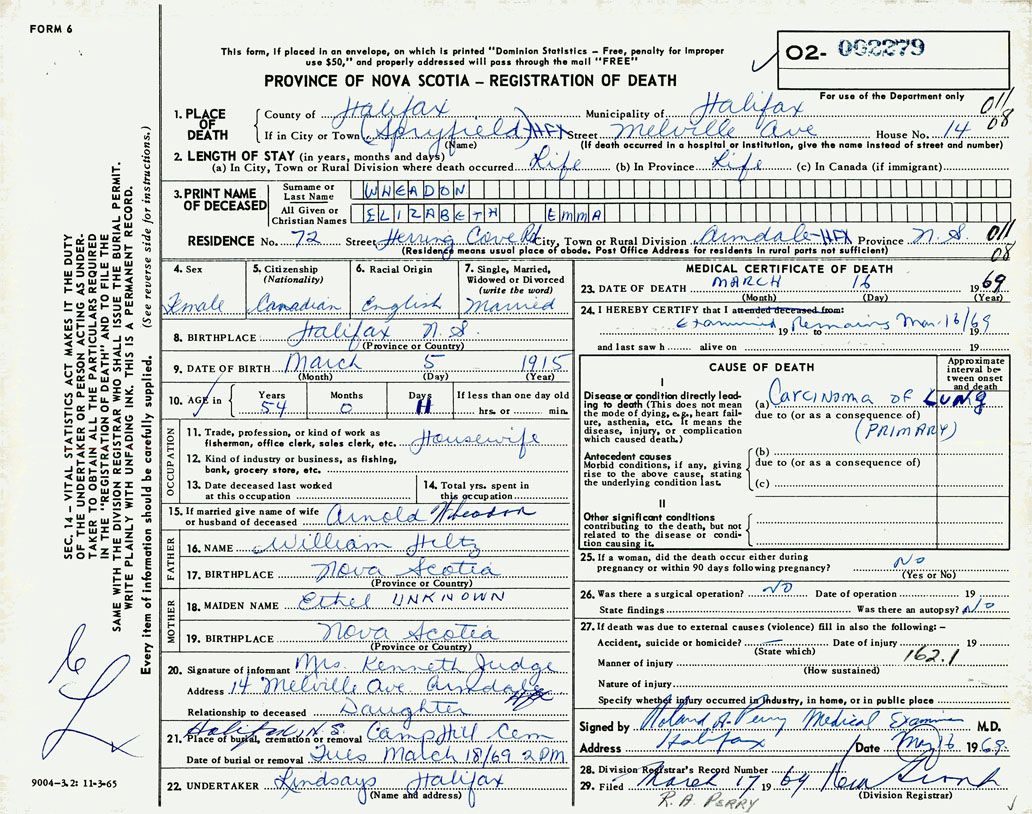 FORM 6
This form, if placed in an envelope, on which is printed "Dominion Statistics – Free, penalty for improper
use $50," and properly addressed will pass through the mail "FREE"
O2- 002279
PROVINCE OF NOVA SCOTIA – REGISTRATION OF DEATH
For use of the Department only
011
08
1. PLACE OF DEATH
County of Halifax Municipality of Halifax
If in City or Town (Spryfield) HFX Street Melville Ave House No. 14
(Name) (If death occurred in a hospital or institution, give the name instead of street and number)
2. LENGTH OF STAY (in years, months and days)
(a) In City, Town or Rural Division where death occurred Life (b) In Province Life (c) In Canada (if immigrant)
3. PRINT NAME OF DECEASED
Surname or Last Name WHEADON
All Given or Christian Names ELIZABETH EMMA
RESIDENCE No. 72 Street Herring Cove Rd City, Town or Rural Division Armdale HFX Province N.S. 011
(Residence means usual place of abode. Post Office Address for residents in rural parts not sufficient) 08
4. Sex Female
5. Citizenship (Nationality) Canadian
6. Racial Origin English
7. Single, Married, Widowed or Divorced (write the word) Married
8. BIRTHPLACE Halifax N.S.
(Province or Country)
9. DATE OF BIRTH March 5 1915
(Month) (Day) (Year)
10. AGE in Years 54 Months 0 Days 11 If less than one day old hrs. or min.
OCCUPATION
11. Trade, profession, or kind of work as fisherman, office clerk, sales clerk, etc. Housewife
12. Kind of industry or business, as fishing, bank, grocery store, etc.
13. Date deceased last worked at this occupation
14. Total yrs. spent in this occupation
15. If married give name of wife or husband of deceased Arnold Wheadon
FATHER
16. NAME William Hiltz
17. BIRTHPLACE Nova Scotia
(Province or Country)
MOTHER
18. MAIDEN NAME Ethel UNKNOWN
19. BIRTHPLACE Nova Scotia
(Province or Country)
20. Signature of informant Mrs. Kenneth Judge
Address 14 Melville Ave Armdale Hfx
Relationship to deceased Daughter
Halifax N.S.
21. Place of burial, cremation or removal Camp Hill Cem
Date of burial or removal Tues March 18/69 2 PM.
22. UNDERTAKER Lindsays Halifax
(Name and address)
MEDICAL CERTIFICATE OF DEATH
23. DATE OF DEATH MARCH 16 1969
(Month) (Day) (Year)
24. I HEREBY CERTIFY that I attended deceased from:
Examined Remains Mar. 16/69
19 to 19
and last saw h alive on 19
CAUSE OF DEATH
Approximate interval between onset and death
I
Disease or condition directly leading to death (This does not mean the mode of dying, e.g., heart failure, asthenia, etc. It means the disease, injury, or complication which caused death.)
(a) Carcinoma of Lung
due to (or as a consequence of)
(PRIMARY)
Antecedent causes
Morbid conditions, if any, giving rise to the above cause, stating the underlying condition last.
(b)
due to (or as a consequence of)
(c)
II
Other significant conditions contributing to the death, but not related to the disease or condition causing it.
25. If a woman, did the death occur either during pregnancy or within 90 days following pregnancy? No
(Yes or No)
26. Was there a surgical operation? No Date of operation 19
State findings Was there an autopsy? No
27. If death was due to external causes (violence) fill in also the following:–
Accident, suicide or homicide? Date of injury 19
(State which)
162.1
Manner of injury
(How sustained)
Nature of injury
Specify whether injury occurred in industry, in home, or in public place
Signed by Roland A. Perry Medical Examiner M.D.
Address Halifax Date 16 1969
28. Division Registrar's Record Number
29. Filed March 17 1969
(Division Registrar)
R.A. PERRY
SEC. 14 – VITAL STATISTICS ACT MAKES IT THE DUTY
OF THE UNDERTAKER OR PERSON ACTING AS UNDER-
TAKER TO OBTAIN ALL THE PARTICULARS REQUIRED
IN THE "REGISTRATION OF DEATH" AND TO FILE THE
SAME WITH THE DIVISION REGISTRAR WHO SHALL ISSUE THE BURIAL PERMIT.
WRITE PLAINLY WITH UNFADING INK. THIS IS A PERMANENT RECORD.
Every item of information should be carefully supplied. (See reverse side for instructions.)
9004–3.2: 11-3-65